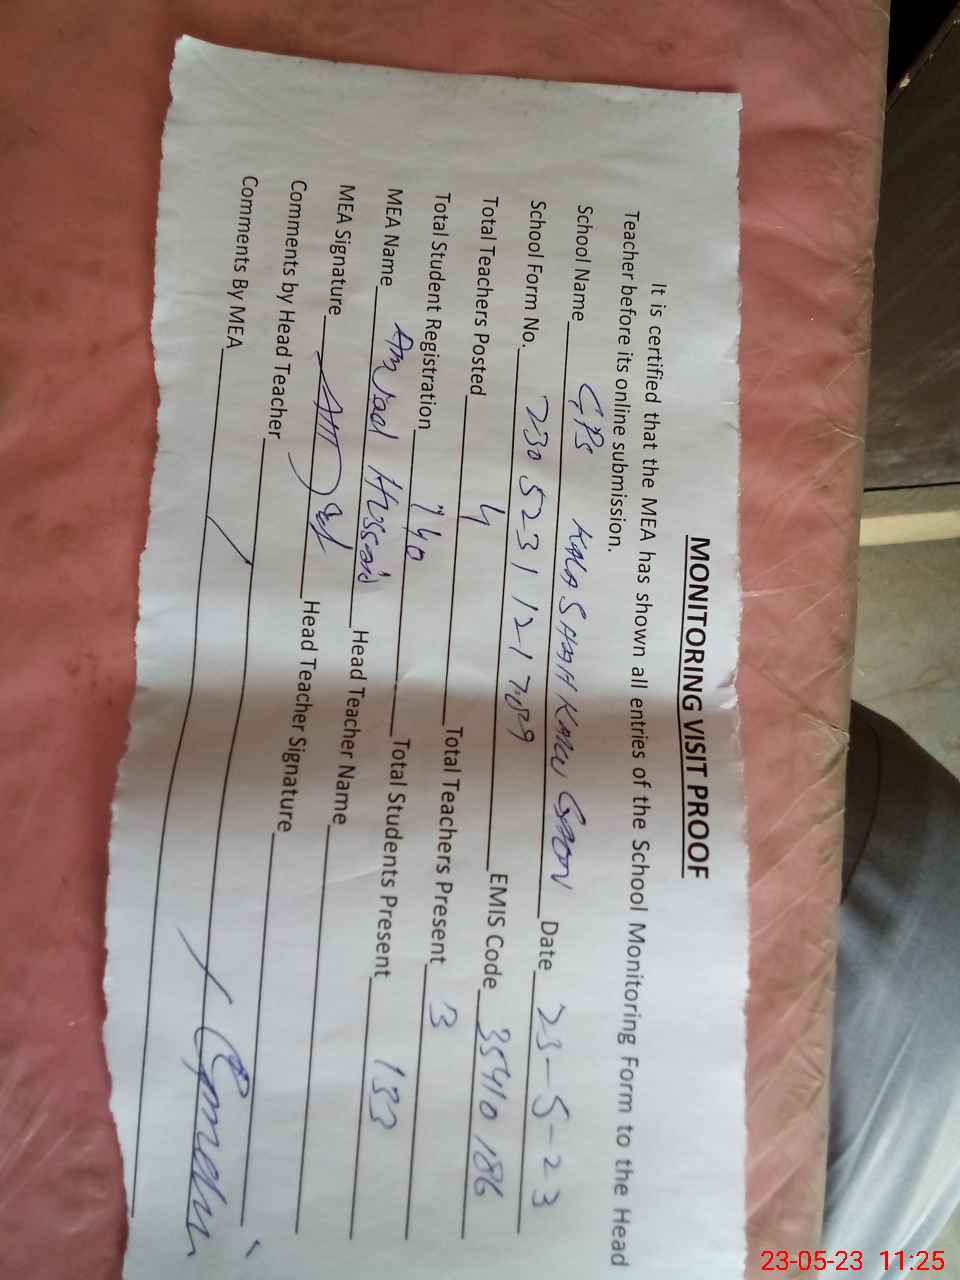 MONITORING VISIT PROOF
It is certified that the MEA has shown all entries of the School Monitoring Form to the Head
Teacher before its online submission.
School Name GPS KALA SHAH KAKU Date 23-5-23
School Form No. 230523112-17089 EMIS Code 35410186
Total Teachers Posted 4 Total Teachers Present 3
Total Student Registration 140 Total Students Present 133
MEA Name Amjad Hussain Head Teacher Name
MEA Signature Head Teacher Signature
Comments by Head Teacher
Comments By MEA
23-05-23 11:25